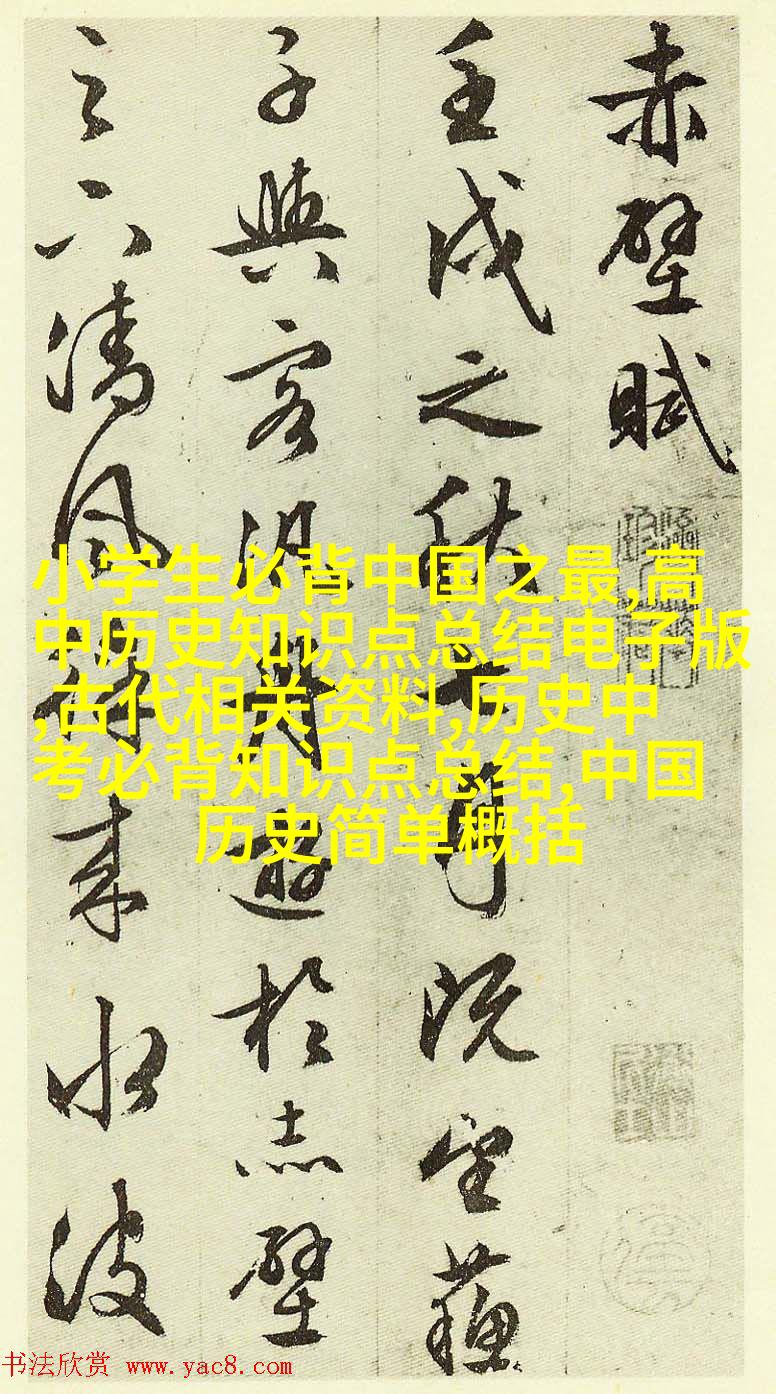 赤壁賦
壬戌之秋七月既望蘇
子與客泛舟遊於赤壁
之下清風徐來水波
小学生必背中国之最,高
中历史知识点总结电子版
,古代相关资料,历史中
考必背知识点总结,中国
历史简单概括
书法欣赏 www.yac8.com